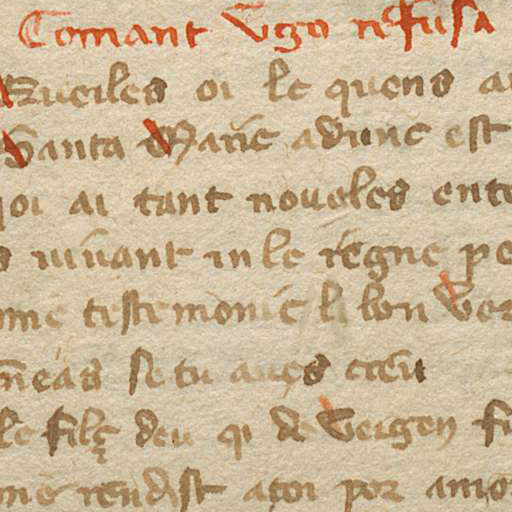 Comant Vgo refusa
Nueiles oi le quens
Santa Marie adunc est
qoi ai tant noueles ente
s uiuant in le regne pe
me testemonie li bon Ver
se tu aues creu
le filz deu qi de Vergen fu
me rendist a toi por amor